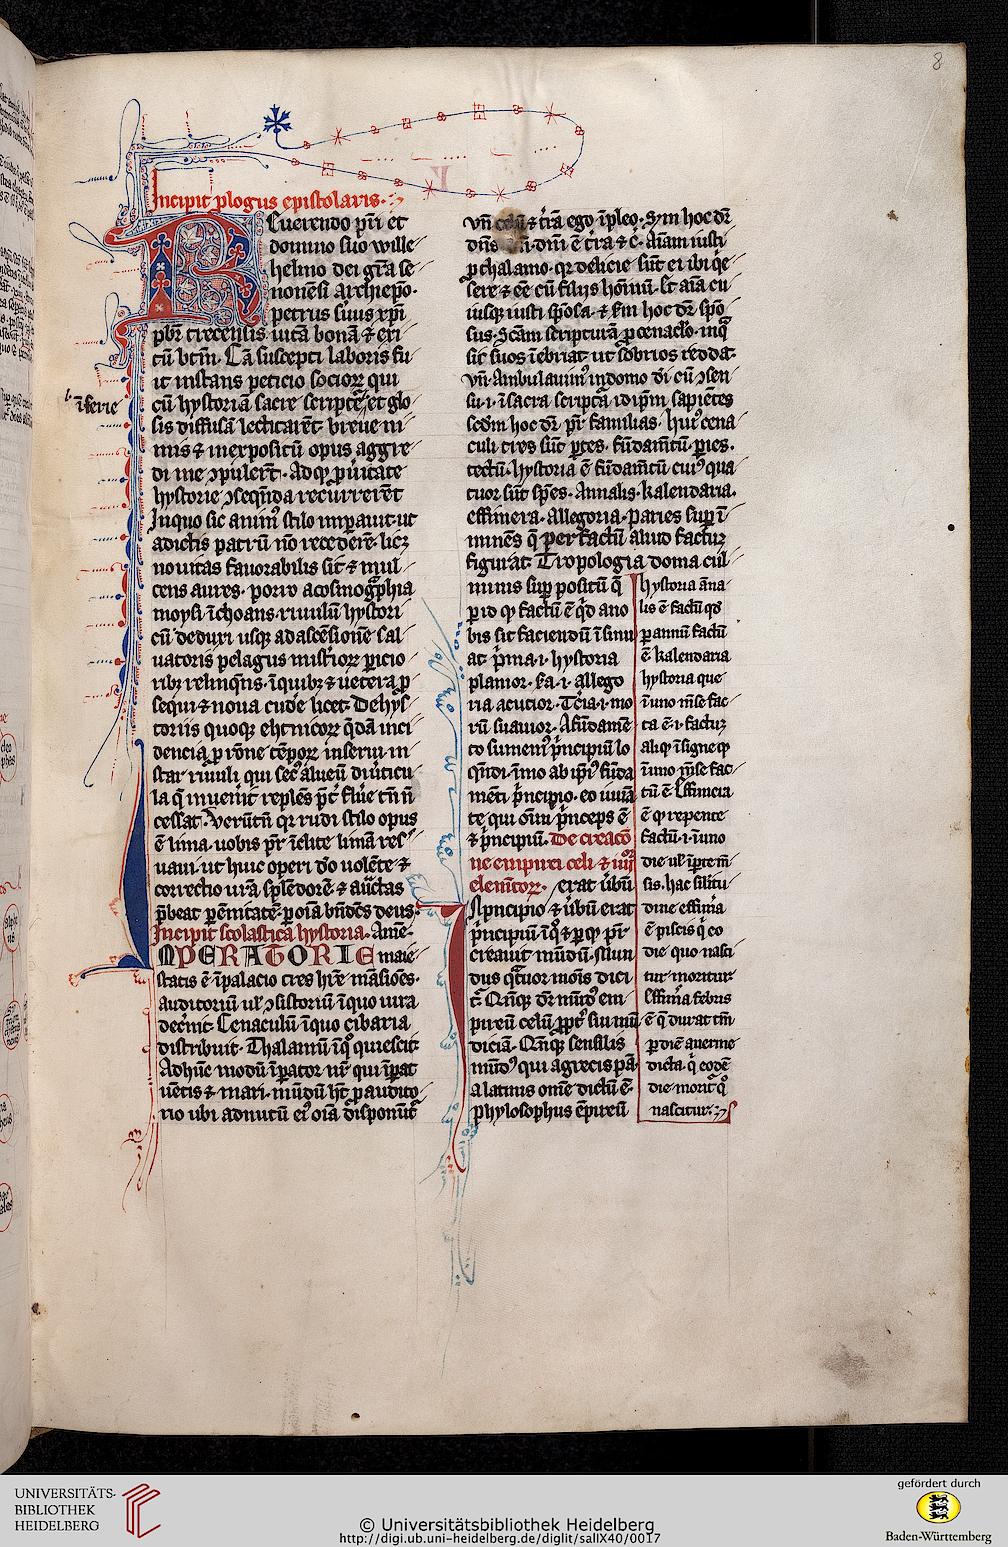 8
Incipit plogus epistolaris.
REuerendo pr̄i et
domino suo wille
helmo dei gr̄a se
nonēsi archiepo.
petrus suus xp̄i
pbr̄ trecensis uitā bonā & exi
tū btm̄. Cā suscepti laboris fu
it instans peticio socioꝝ qui
cū hystoriā sacre scriptē et glo
sis diffusā lectitarēt breue ni
mis & inexpositū opus aggre
di me ꝯpulert̄. Ad qꝫ puitate
hystorie ꝯseqn̄da recurrerēt
In quo sic animꝰ stilo impauit ut
a dictis patrū nō recederē. licꝫ
nouitas fauorabilis sit & mul
cens aures. porro a cosmogphia
moysi īchoans. riuulū hystori
cū deduxi usqꝫ ad ascēsionē sal
uatoris pelagus mistioꝝ picio
ribꝫ relinqn̄s. ī quibꝫ & uetera p
sequi & noua cudē licet. De hys
toriis quoqꝫ ehtnicoꝝ qdā inci
dencia p rōne tēpoꝝ inserui in
star riuuli qui sec̄ alueū diuticu
la q̄ inuenit replēs p̄t flue tn̄ n̄
cessat. Verūtn̄ qꝛ rudi stilo opus
ē lima. uobis pr̄ īclite limā res
uaui. ut huic operi do uolēte &
correctio ur̄a splēdorē. & auctas
p̄beat pēnitatē. p oīa bn̄dcs deus.
Incipit scolastica hystoria. Amē.
IMPERATORIE maie
statis ē ī palacio tres hr̄e māsiōes.
auditoriū ul̓ ꝯsistoriū ī quo iura
dec̄nit. Cenaculū ī quo cibaria
distribuit. Thalamū ī qͦ quiescit.
Ad hūc modū īpator nr̄ qui īpat
uētis & mari. mūdū ht̄ p audito
rio ubi ad nutū eiꝰ oīa disponūt̄
b
ī serie
vn̄ celū & tr̄ā ego īpleo. Sym hoc dr̄
dn̄s
p chalamo. qꝛ delicie sūt ei ibi q̄e
scere & ee cū filiis hoīnū. Et aīā cu
iusqꝫ iusti spōsa. & sm̄ hoc dr̄ spō
sus. Scām scripturā p cenaclo. in q̄
sic suos īebriat ut sobrios reddat.
vn̄. Ambulauimꝰ in domo di cū ꝯsen
su. i. ī sacra scripta id ip̄m sapiētes
scdm hoc dr̄ pr̄ familias. Huiꝰ cena
culi tres sūt ptes. fūdam̄tū. pies.
tectū. hystoria ē fūdam̄tū. cuiꝰ qua
tuor sūt spēs. Annalis. kalendaria.
effimera. Allegoria. paries sup ī
minēs q̄ per factū aliud factū
figurat. Tropologia doma cul
minis supp positū q̄
p id qꝫ factū ē qͥd a no
bis sit faciendū ī sinu
at. pͥma. i. hystoria
planior. sa. i. allego
ria acutior. Tc̄ia. i. mo
rū suauior. A fūdamē
to sumemꝰ pͥncipiū lo
qn̄di. īmo ab ipīꝰ fūda
mēti pͥncipio. eo iuuā
te qui oīnū pͥnceps ē
& pͥncipiū. De creaco
ne empirei celi & iiii
elemētoꝝ. erat ūbū
IN pͥncipio & ūbū erat
pͥncipiū ī qͦ & p qꝫ pr̄
creauit mūdū. Mun
dus qͣtuor mōis dici
t̄. Qn̄qꝫ dr̄ mūdꝰ em
pireū celū ppt̓ sui mū
diciā. Qn̄qꝫ sensilis
mūdꝰ qui a grecis pā
a latinis omē dictū ē.
phylosophus ēpireū
hystoria āna
lis ē factū qd̓
p annū factū
ē kalendaria
hystoria que
ī uno mēse fac
ta ē. i. factū
aliqꝫ ī signe qꝫ
ī uno mēse fac
tū ē Effimeia
ē qꝫ repente
factū. i. ī uno
die ul̓ ip̄rem̄
sis. hac silitu
dine effim̄a
ē piscis q̄ eo
die quo nasci
tur moritur
Effim̄a febris
ē q̄ durat tm̄
p diē a uenne
dicta. q̄ eodē
die morit̄ qͦ
nascitur.
UNIVERSITÄTS-
BIBLIOTHEK
HEIDELBERG
© Universitätsbibliothek Heidelberg
http://digi.ub.uni-heidelberg.de/diglit/salIX40/0017
gefördert durch
Baden-Württemberg